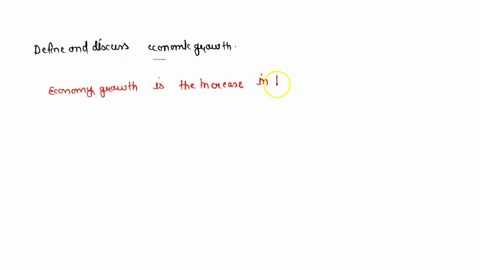 Define and discuss economic growth.
Economic growth is the increase in